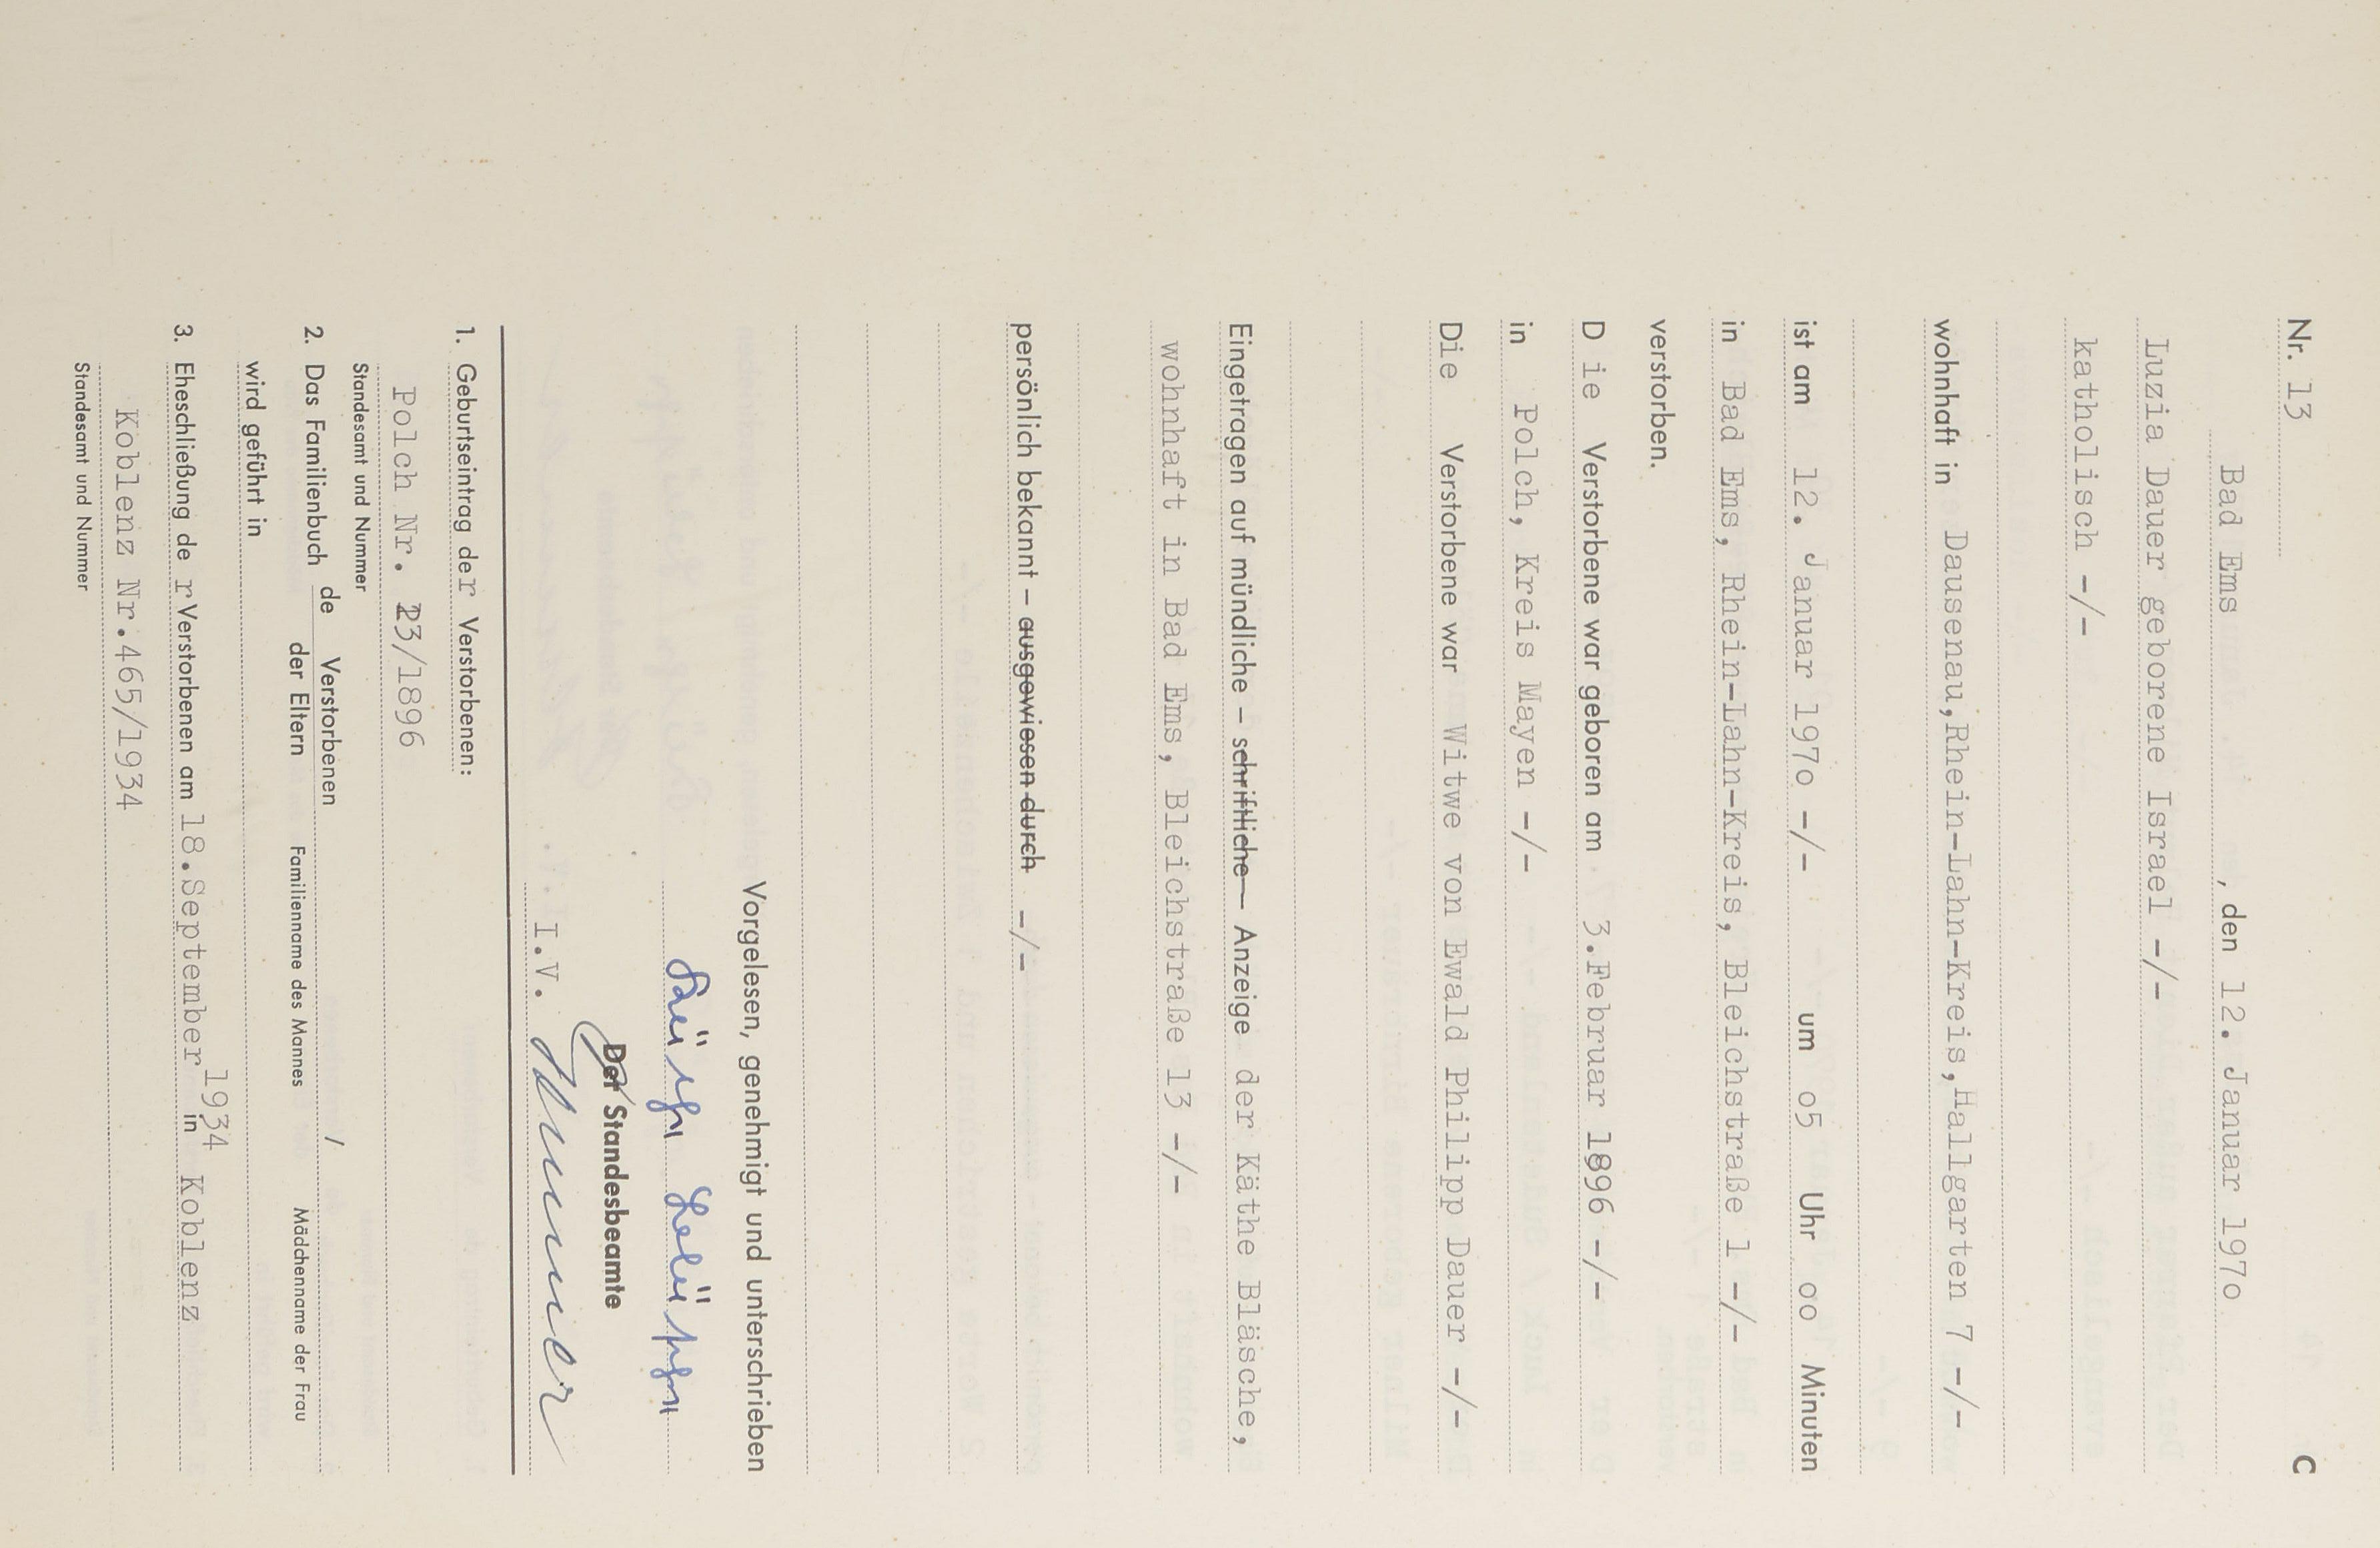 Nr. 13 C
Bad Ems , den 12. Januar 197o
Luzia Dauer geborene Israel -/-
katholisch -/-
wohnhaft in Dausenau,Rhein-Lahn-Kreis,Hallgarten 7 -/-
ist am 12. Januar 197o -/- um o5 Uhr oo Minuten
in Bad Ems, Rhein-Lahn-Kreis, Bleichstraße 1 -/-
verstorben.
D ie Verstorbene war geboren am 3.Februar 1896 -/-
in Polch, Kreis Mayen -/-
Die Verstorbene war Witwe von Ewald Philipp Dauer -/-
Eingetragen auf mündliche - schriftliche - Anzeige der Käthe Bläsche,
wohnhaft in Bad Ems, Bleichstraße 13 -/-
persönlich bekannt - ausgewiesen durch -/-
Vorgelesen, genehmigt und unterschrieben
Der Standesbeamte
I.V.
1. Geburtseintrag der Verstorbenen:
Polch Nr. 23/1896
Standesamt und Nummer
2. Das Familienbuch de Verstorbenen /
der Eltern Familienname des Mannes Mädchenname der Frau
wird geführt in
3. Eheschließung de r Verstorbenen am 18.September 1934 in Koblenz
Koblenz Nr.465/1934
Standesamt und Nummer